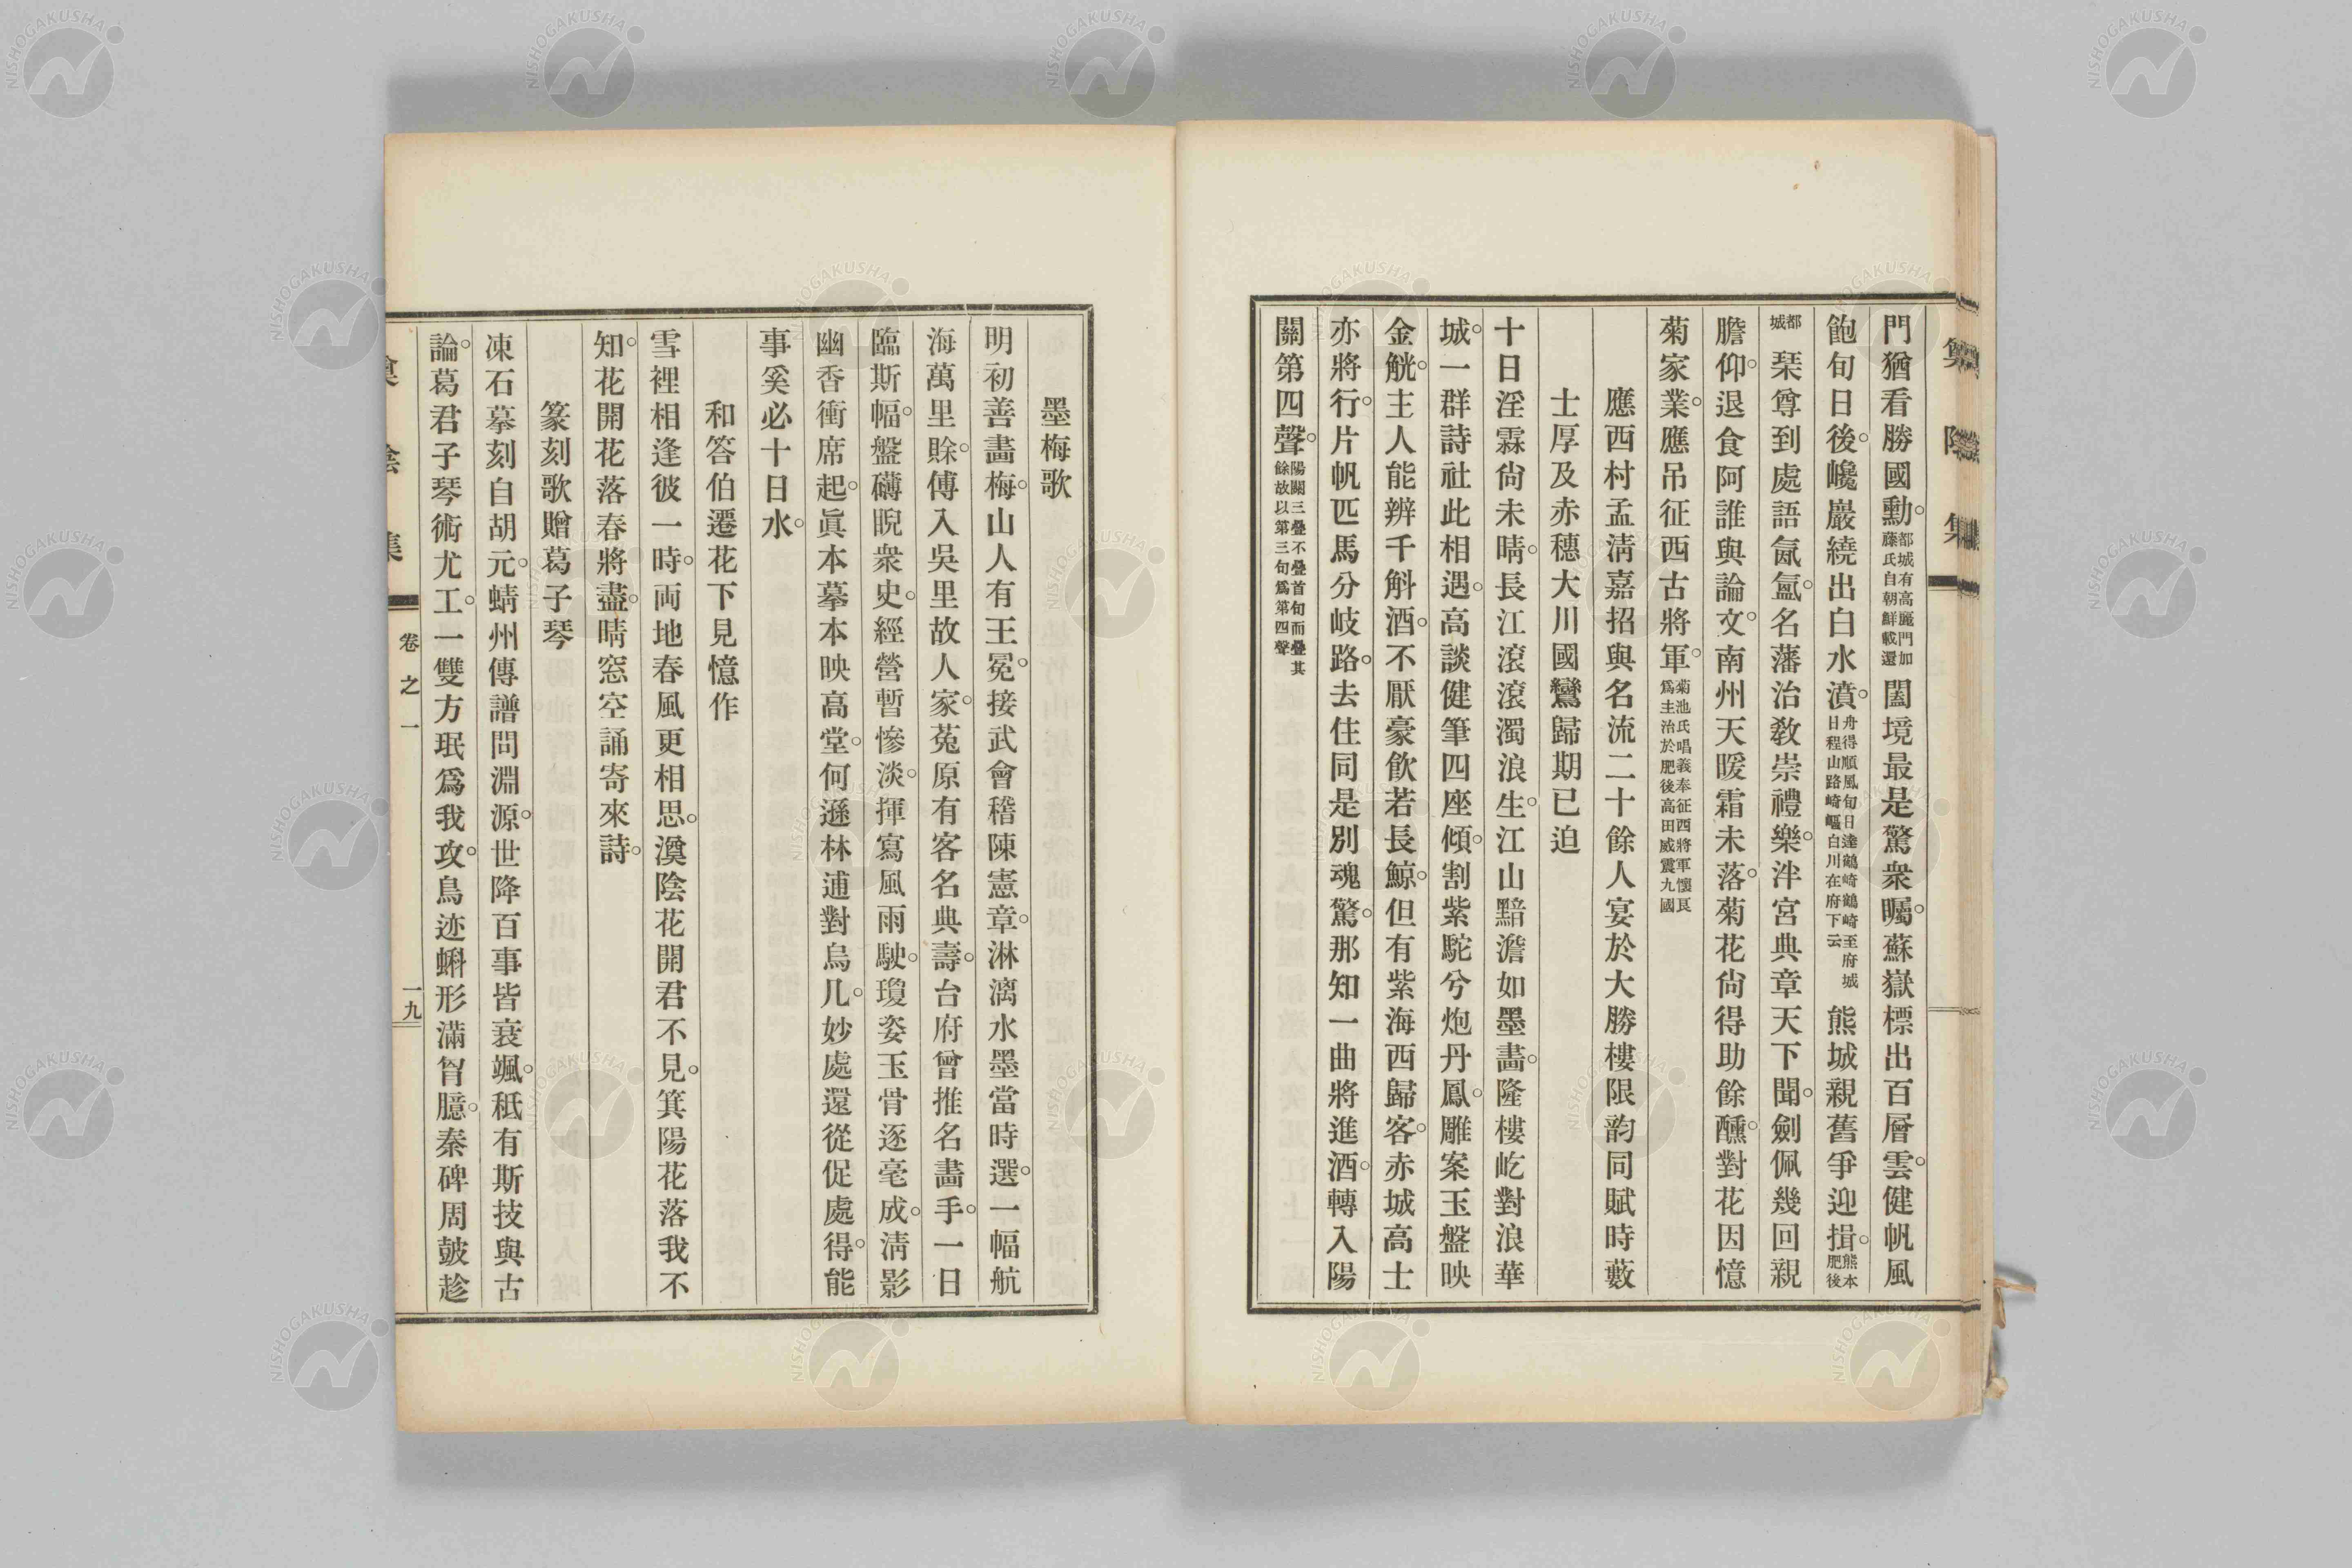 門猶看勝國勳。都城有高麗門加藤氏自朝鮮載還闔境最是驚衆矚。蘇嶽標出百層雲。健帆風
飽旬日後。巉巖繞出白水濆。舟得順風旬日達鶴崎鶴崎至府城日程山路崎嶇白川在府下云熊城親舊爭迎揖。熊本肥後
都城栞尊到處語氤氳。名藩治敎崇禮樂。泮宮典章天下聞。劍佩幾回親
膽仰。退食阿誰與論文。南州天暖霜未落。菊花尙得助餘醺。對花因憶
菊家業。應吊征西古將軍。菊池氏唱義奉征西將軍懷良爲主治於肥後高田威震九國
應西村孟淸嘉招與名流二十餘人宴於大勝樓限韵同賦時藪
士厚及赤穗大川國鸞歸期已迫
十日淫霖尙未晴。長江滾滾濁浪生。江山黯澹如墨畵。隆樓屹對浪華
城。一群詩社此相遇。高談健筆四座傾。割紫駝兮炮丹鳳。雕案玉盤映
金觥。主人能辨千斛酒。不厭豪飮若長鯨。但有紫海西歸客。赤城高士
亦將行。片帆匹馬分岐路。去住同是別魂驚。那知一曲將進酒。轉入陽
關第四聲。陽關三疊不疊首句而疊其餘故以第三句爲第四聲
墨梅歌
明初善畵梅。山人有王冕。接武會稽陳憲章。淋漓水墨當時選。一幅航
海萬里賖。傅入吳里故人家。菟原有客名典壽。台府曾推名畵手。一日
臨斯幅。盤礴睨衆史。經營暫慘淡。揮寫風雨駛。瓊姿玉骨逐毫成。淸影
幽香衝席起。眞本摹本映高堂。何遜林逋對烏几。妙處還從促處得。能
事奚必十日水。
和答伯遷花下見憶作
雪裡相逢彼一時。両地春風更相思。渼陰花開君不見。箕陽花落我不
知。花開花落春將盡。晴窓空誦寄來詩。
篆刻歌贈葛子琴
凍石摹刻自胡元。蜻州傳譜問淵源。世降百事皆衰颯。秪有斯技與古
論。葛君子琴術尤工。一雙方珉爲我攻。鳥迹蝌形滿胷臆。秦碑周皷趁
卷之一
一九